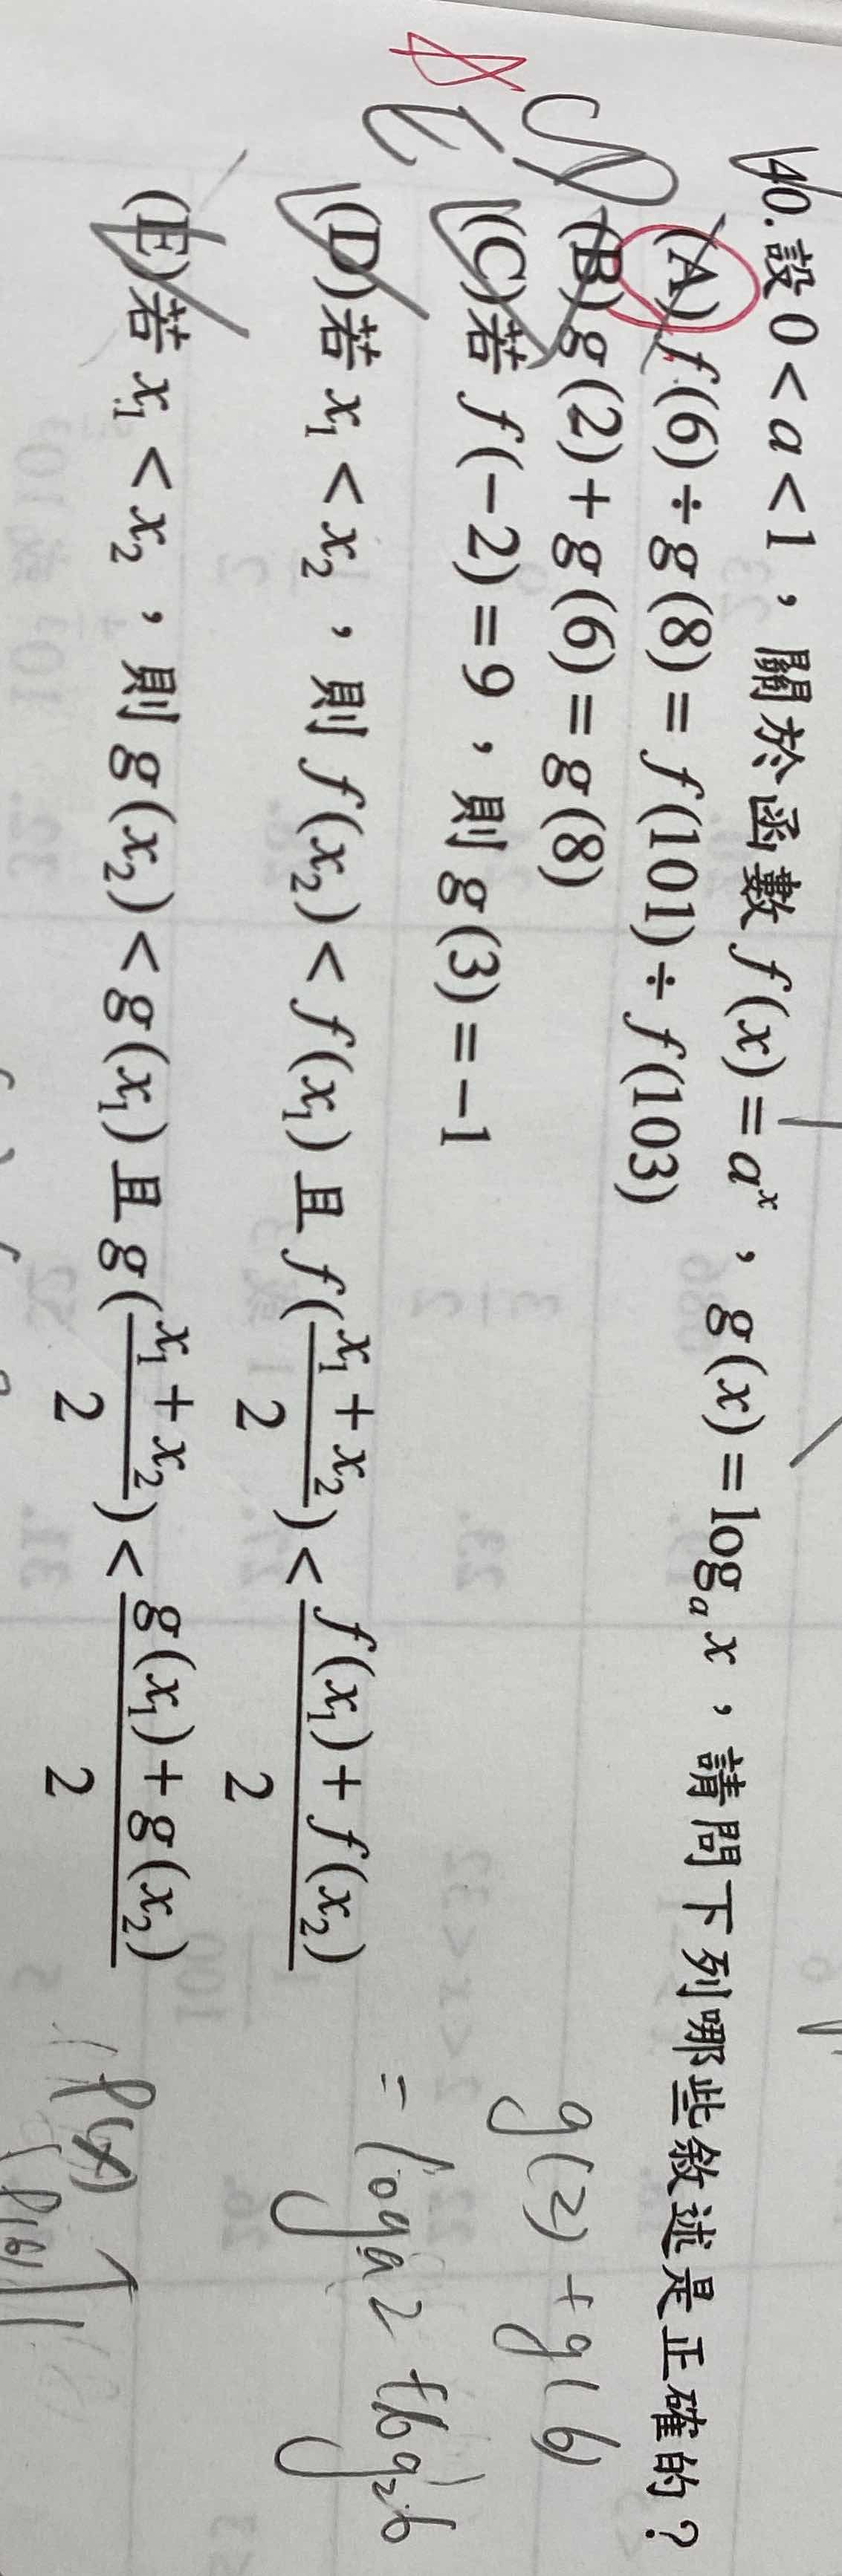 40. 設 0 < a < 1，關於函數 f(x) = a^x，g(x) = log_a x，請問下列哪些敘述是正確的？
(A) f(6) ÷ g(8) = f(101) ÷ f(103)
(B) g(2) + g(6) = g(8)
(C) 若 f(−2) = 9，則 g(3) = −1
(D) 若 x₁ < x₂，則 f(x₂) < f(x₁) 且 f((x₁ + x₂)/2) < (f(x₁) + f(x₂))/2
(E) 若 x₁ < x₂，則 g(x₂) < g(x₁) 且 g((x₁ + x₂)/2) < (g(x₁) + g(x₂))/2
g(2) + g(6)
= log a 2 + log 2 6
f(x)